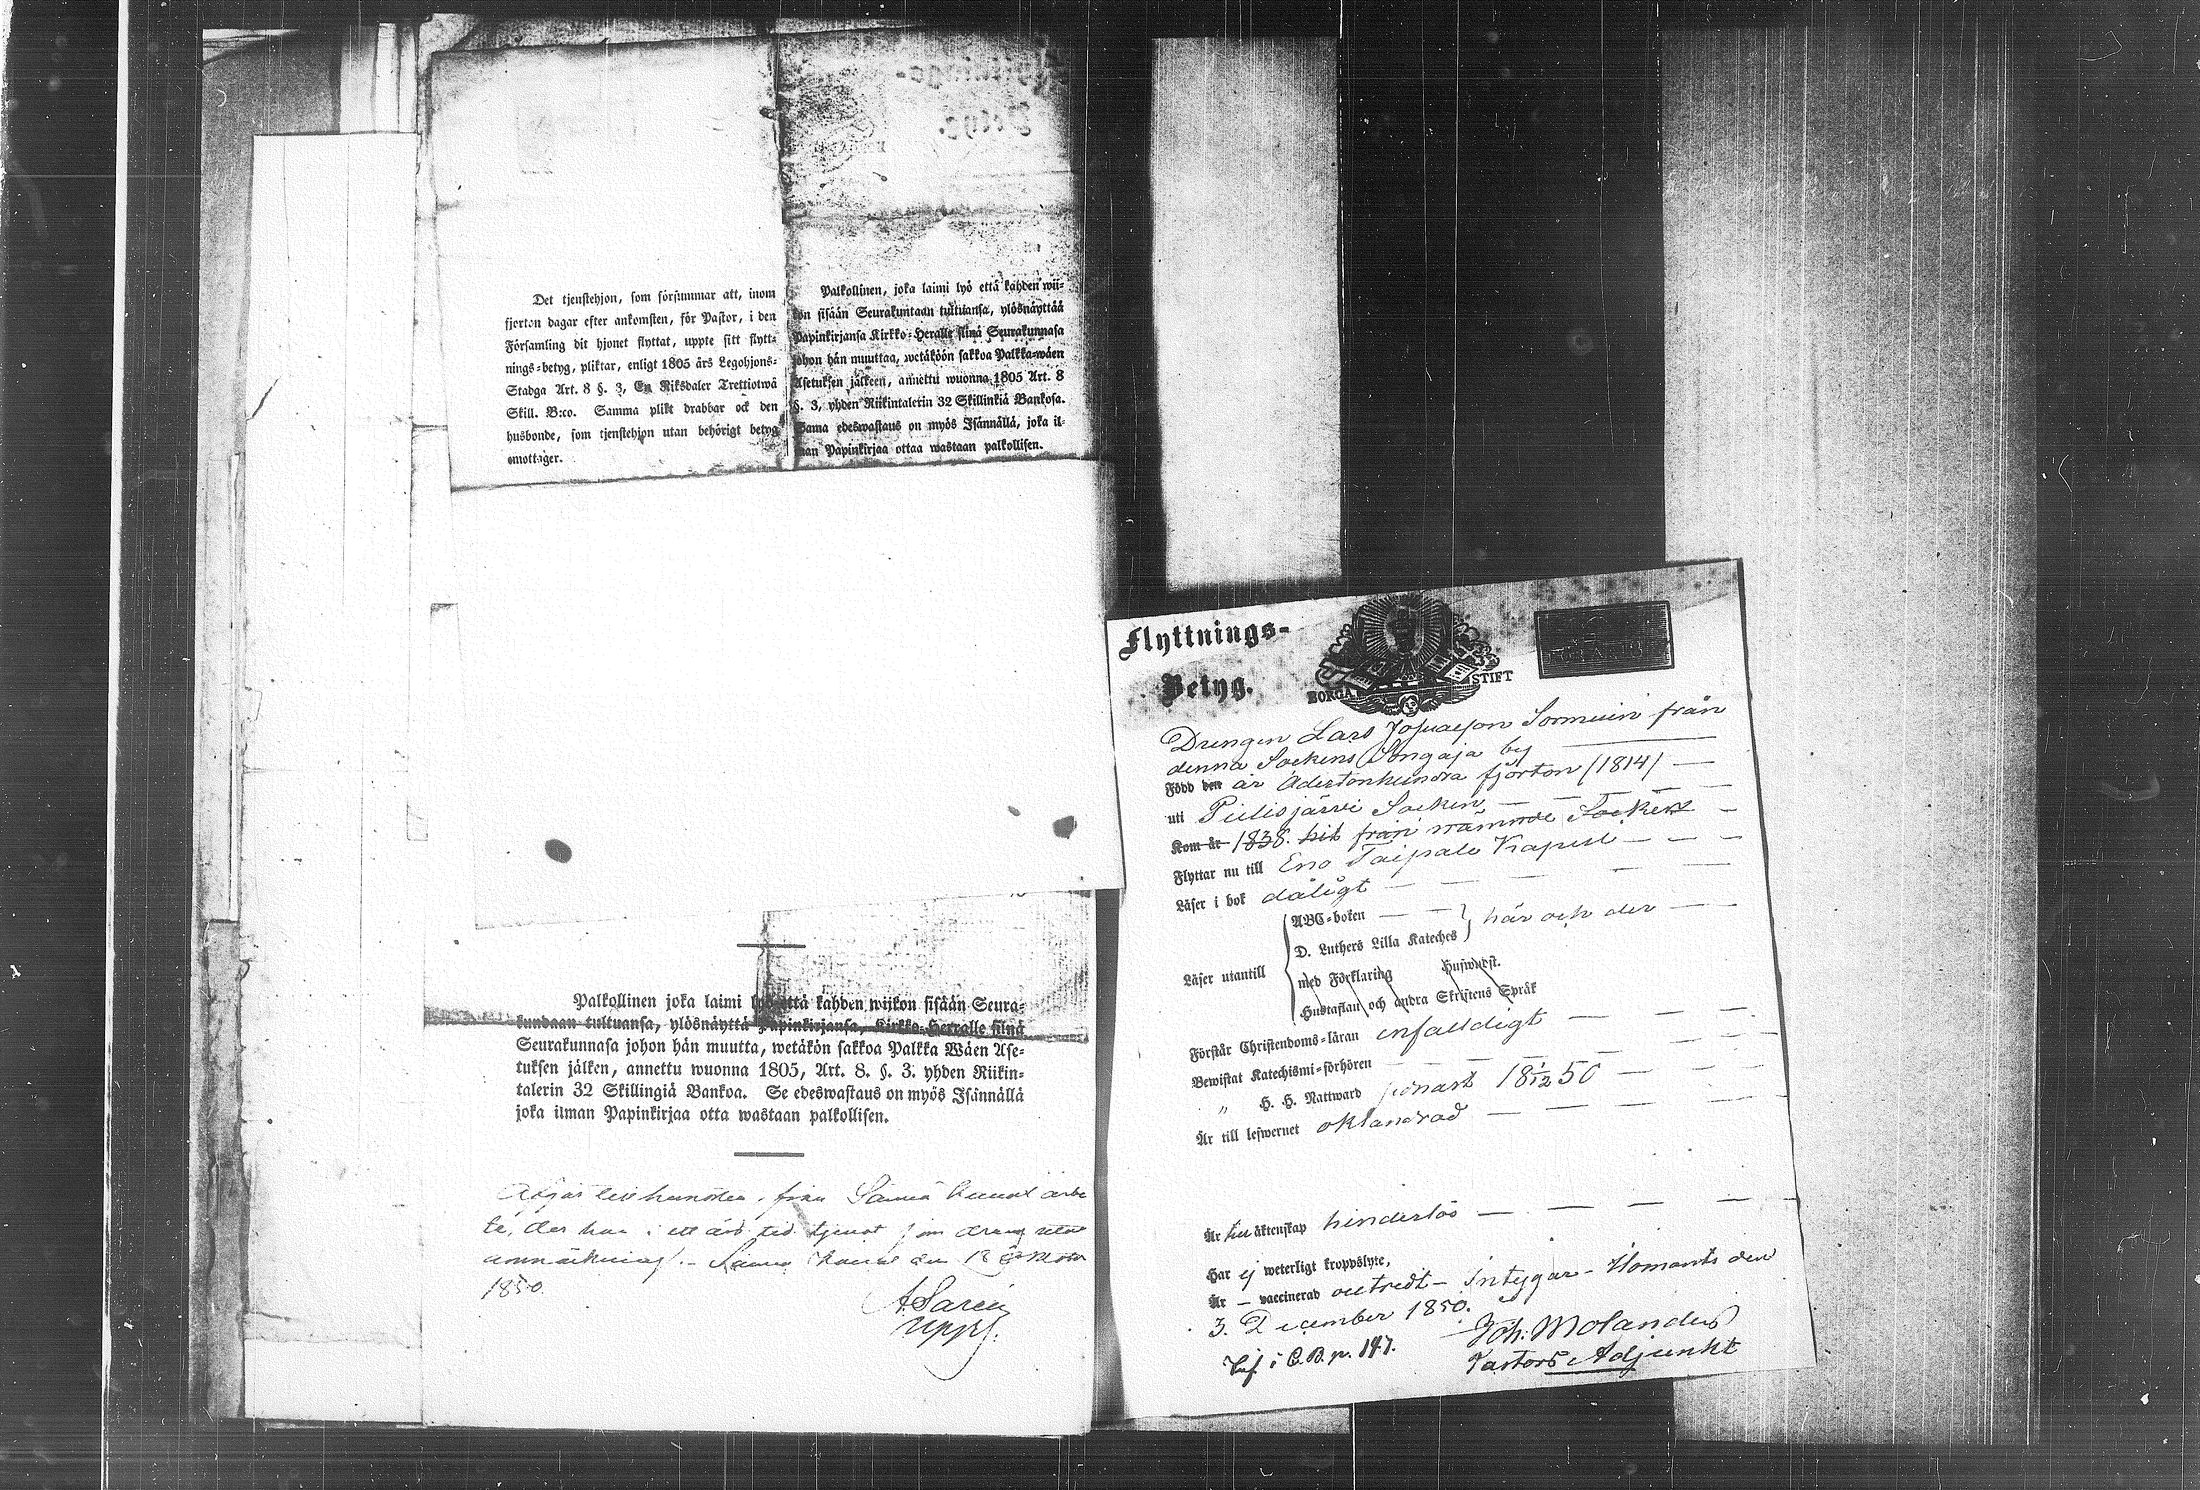 Det tjenstehjon, som försummar att, inom
fjorton dagar efter ankomsten, för Pastor, i den
Församling dit hjonet flyttat, uppte sitt flytt-
nings-betyg, pliktar, enligt 1805 års Legohjons-
Stadga Art. 8 §. 3, En Riksdaler Trettiotwå
Skill. B:co. Samma plikt drabbar ock den
husbonde, som tjenstehjon utan behörigt betyg
emottager.
Palkollinen, joka laimi lyö että kahden wii-
kon sisään Seurakuntaan tultuansa, ylösnäyttää
Papinkirjansa Kirkko-Heralle siinä Seurakunnasa
johon hän muuttaa, wetäköön sakkoa Palkka-wäen
Asetuksen jälkeen, annettu wuonna 1805 Art. 8
§. 3, yhden Riikintalerin 32 Skillinkiä Bankosa.
Sama edeswastaus on myös Isännällä, joka il-
man Papinkirjaa ottaa wastaan palkollisen.
Palkollinen joka laimi lyö että kahden wiikon sisään Seura-
kundaan tultuansa, ylösnäyttä Papinkirjansa, Kirkko-Herralle siinä
Seurakunnasa johon hän muutta, wetäkön sakkoa Palkka Wäen Ase-
tuksen jälken, annettu wuonna 1805, Art. 8. §. 3. yhden Riikin-
talerin 32 Skillingiä Bankoa. Se edeswastaus on myös Isännällä
joka ilman Papinkirjaa otta wastaan palkollisen.
från
te, der han i ett års tid tjenat som dräng utan
anmärkning.
1850.
Flyttnings-
Betyg.
BORGÅ STIFT
Drengen Lars Josuasson Sormuin från
denna Sockens Songaja by
Född den år Adertonhundra fjorton (1814)
uti Pielisjärvi Socken
Kom år 1838. hit från nämnde Socken
Flyttar nu till Eno Taipale Kapell
Läser i bok dåligt
Läser utantill
ABC-boken
D. Luthers Lilla Kateches här och der
med Förklaring Huswudst.
Hustaflan och andra Skriftens Språk
Förstår Christendoms-läran enfalldigt
Bewistat Katechismi-förhören
" H. H. Nattward senast 18 1/12 50
Är till lefwernet oklandrad
Är till äktenskap hinderlös
Har ej weterligt kroppslyte,
Är – vaccinerad outredt – Intygar – Ilomants den
3. December 1850.
Joh: Molander
Pastors Adjunkt
Inf. i C.B. p. 147.